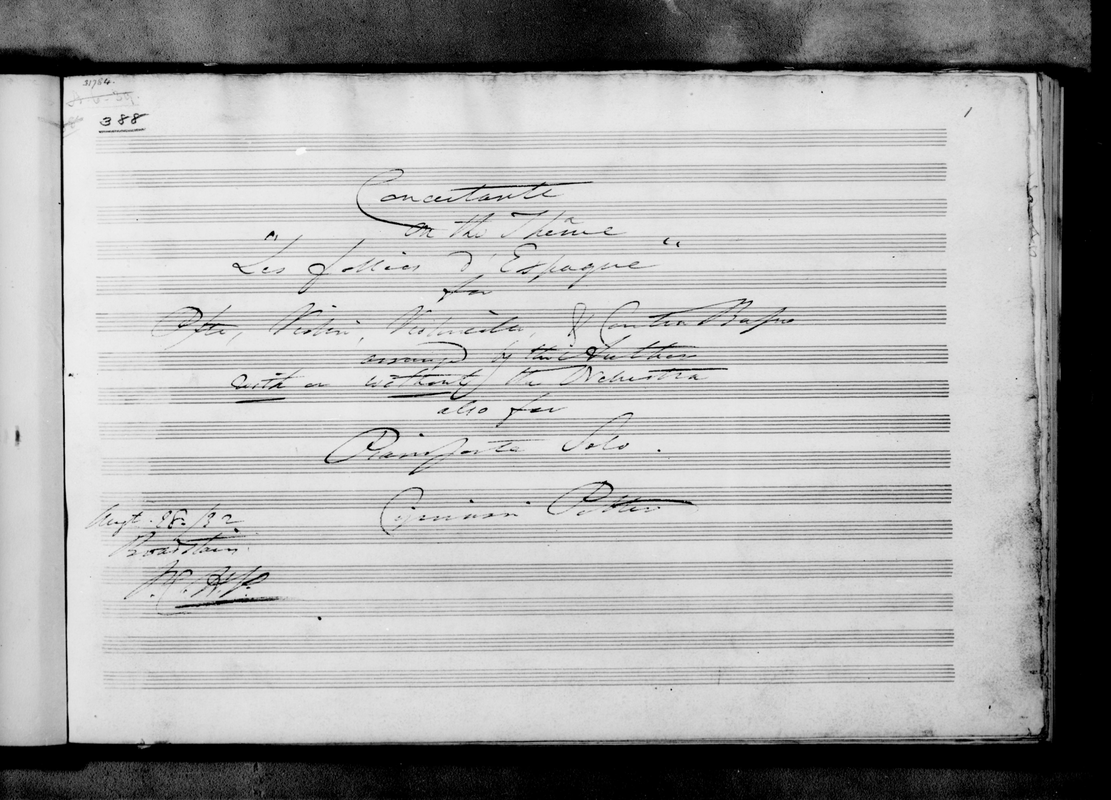 31764.
388
1
Concertante
on the Thême
"Les follies d'Espagne"
for
Pfte, Violin, Violoncello, & Contra Basso
arranged by the Author
with or without the Orchestra
also for
Pianoforte Solo.
Cipriani Potter
Augt.
Broadstairs.